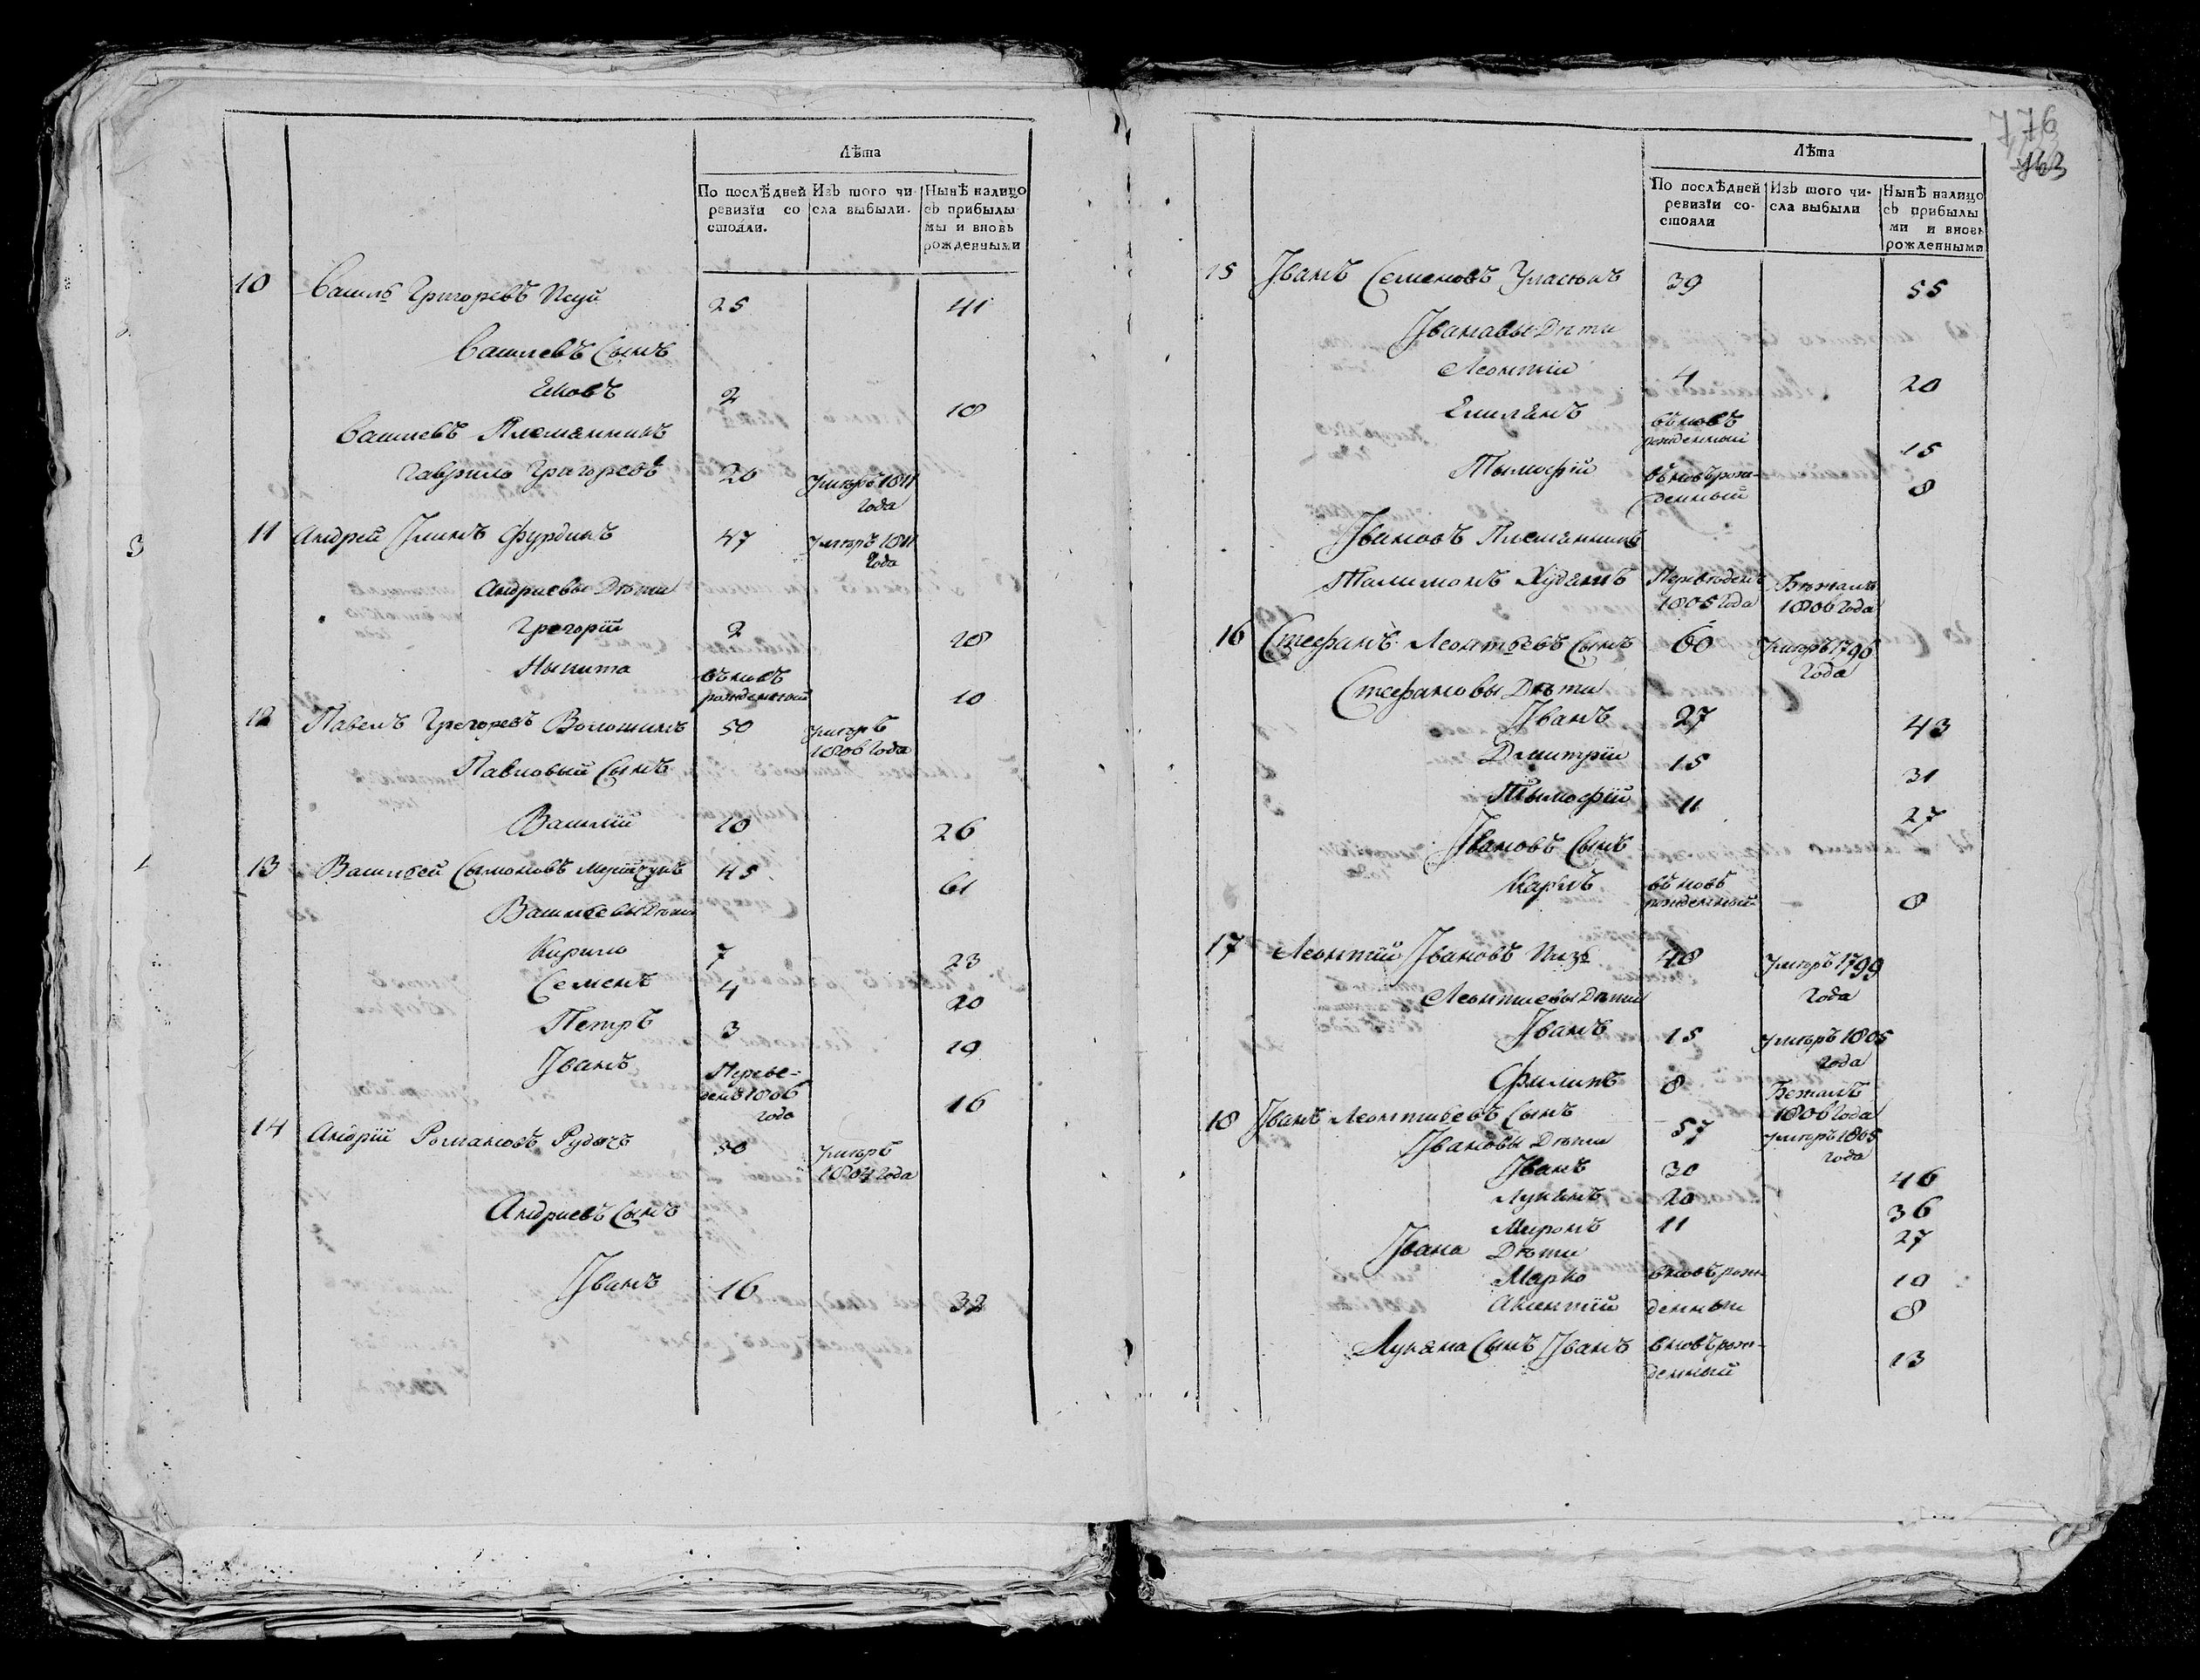 Лѣта
По послѣдней ревизїи состояли.
Изъ того числа выбыли.
Нынѣ налицо съ прибылыми и вновь рожденными
10 Василь Григоревъ 25 41
Василевъ Сынъ
2 18
Василевъ Племянникъ
Гаврило Григоревъ 20 Умеръ 1811 Года
11 Андрей 47 Умеръ 1811 Года
Андриевы Дѣти
Грегорїй 2 18
Ныкита въновъ рожденный 10
12 Павелъ Грегоревъ Волошинъ 50 Умеръ 1806 Года
Павловый Сынъ
Василїй 10 26
13 Василей Сымоновъ 45 61
Василевы Дѣти
Кирило 7 23
Семенъ 4 20
Петръ 3 19
Іванъ Переведенъ 1806 года 16
14 Андрїй Романовъ Рудычъ 50 Умеръ 1804 года
Андриевъ Сынъ
Іванъ 16 32
776
163
Лѣта
По послѣдней ревизїи состояли
Изъ того числа выбыли
Нынѣ налицо съ прибылыми и вновь рожденными
15 Іванъ Семеновъ 39 55
Івановы Дѣти
Леонтїй 4 20
Емилянъ въновъ рожденный 15
Тымофїй въновъ рожденный 8
Івановъ Племянникъ
Талимонъ 1805 Года Бѣжалъ 1806 Года
16 Стефанъ Леонтьевъ Сынъ 60 Умеръ 1796 Года
Стефановы Дѣти
Іванъ 27 43
Дмитрїй 15 31
Тымофїй 11 27
Івановъ Сынъ
Карпъ въновъ рожденный 8
17 Леонтїй Івановъ 48 Умеръ 1799 Года
Леонтиевы Дѣти
Іванъ 15 Умеръ 1805 Года
Филипъ 8 Бежалъ 1806 Года
18 Іванъ Леонтиевъ Сынъ 57 Умеръ 1805 года
Івановы Дѣти
Іванъ 30 46
Лукянъ 20 36
Миронъ 11 27
Івана Дѣти
Марко вновь рож- 10
денныи 8
Лукяна Сынъ Іванъ вновь рожденный 13